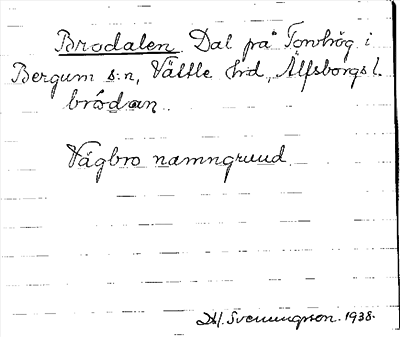 Brodalen Dal på Torvhög i
Bergum s:n, Vättle hrd, Älfsborgs l.
brödan.
Vägbro namngrund
Svenungsson. 1938.